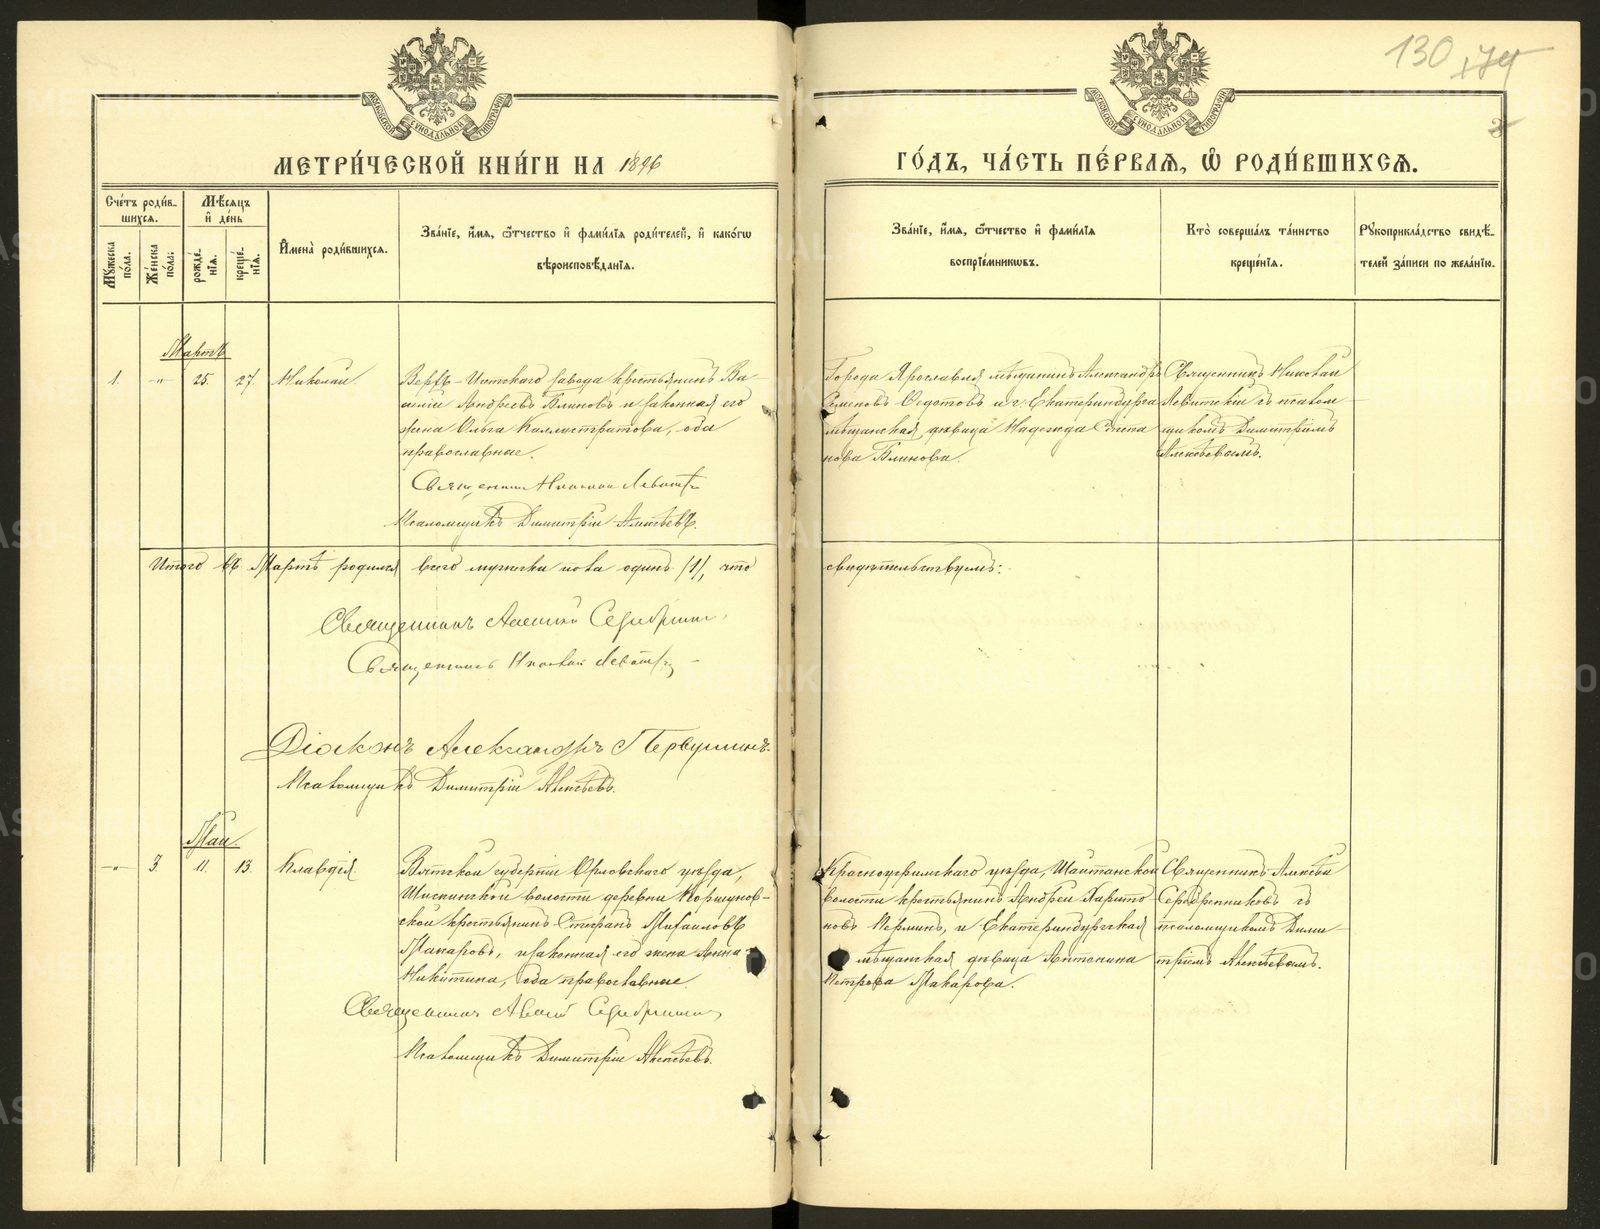 130 174
МОСКОВСКОЙ СУНОДАЛЬНОЙ ТИПОГРАФІИ
МОСКОВСКОЙ СУНОДАЛЬНОЙ ТИПОГРАФІИ
МЕТРИ́ЧЕСКОЙ КНИ́ГИ НА 1896
ГО́ДЪ, ЧА́СТЬ ПЕ́РВАѦ, Ѡ҆ РОДИ́ВШИХСѦ.
Сче́тъ роди́в-
шихсѧ.
Мꙋ́жеска по́ла.
Же́нска по́ла.
Мѣ́сѧцъ
и҆ де́нь
рожде́-
нїѧ.
креще́-
нїѧ.
И҆мена̀ роди́вшихсѧ.
Зва́нїе, и҆́мѧ, ѻ҆́тчество и҆ фами́лїѧ роди́телей, и҆ како́гѡ
вѣроисповѣ́данїѧ.
Зва́нїе, и҆́мѧ, ѻ҆́тчество и҆ фами́лїѧ
воспрїе́мникѡвъ.
Кто̀ соверша́лъ та́инство
креще́нїѧ.
Рꙋкоприкла́дство свидѣ́-
телей за́писи по жела́нїю.
Мартъ
1. -"- 25. 27. Николай
Верхъ-Исетскаго завода крестьянинъ Ва-
силій Андреевъ Блиновъ и законная его
жена Ольга Каллистратова, оба
православные.
Священникъ Николай Левитскій
Псаломщикъ Димитрій Алексѣевъ.
Города Ярославля мѣщанинъ Александръ
Семеновъ Федотовъ и г. Екатеринбурга
мѣщанская дѣвица Надежда Степа
нова Блинова.
Священникъ Николай
Левитскій съ псалом-
щикомъ Димитріемъ
Алексѣевымъ.
Итого въ Мартѣ родился всего мужеска пола одинъ (1), что
свидѣтельствуемъ:
Священникъ Алексій Серебрянниковъ
Священникъ Николай Левитскій
Діаконъ Александръ Первушинъ.
Псаломщикъ Димитрій Алексѣевъ.
Май
-"- 3. 11. 13. Клавдія
Вятской губерніи Орловскаго уѣзда,
волости деревни Коршунов-
ской крестьянинъ Стефанъ Михайловъ
Макаровъ, и законная его жена Анна
Никитина, оба православные.
Священникъ Алексій Серебрянниковъ
Псаломщикъ Димитрій Алексѣевъ.
Красноуфимскаго уѣзда, Шайтанской
волости крестьянинъ Андрей Харито
новъ и Екатеринбургская
мѣщанская дѣвица Антонина
Петрова Макарова.
Священникъ Алексій
Серебренниковъ съ
псаломщикомъ Дими-
тріемъ Алексѣевымъ.
METRIKI.GASO-URAL.RU